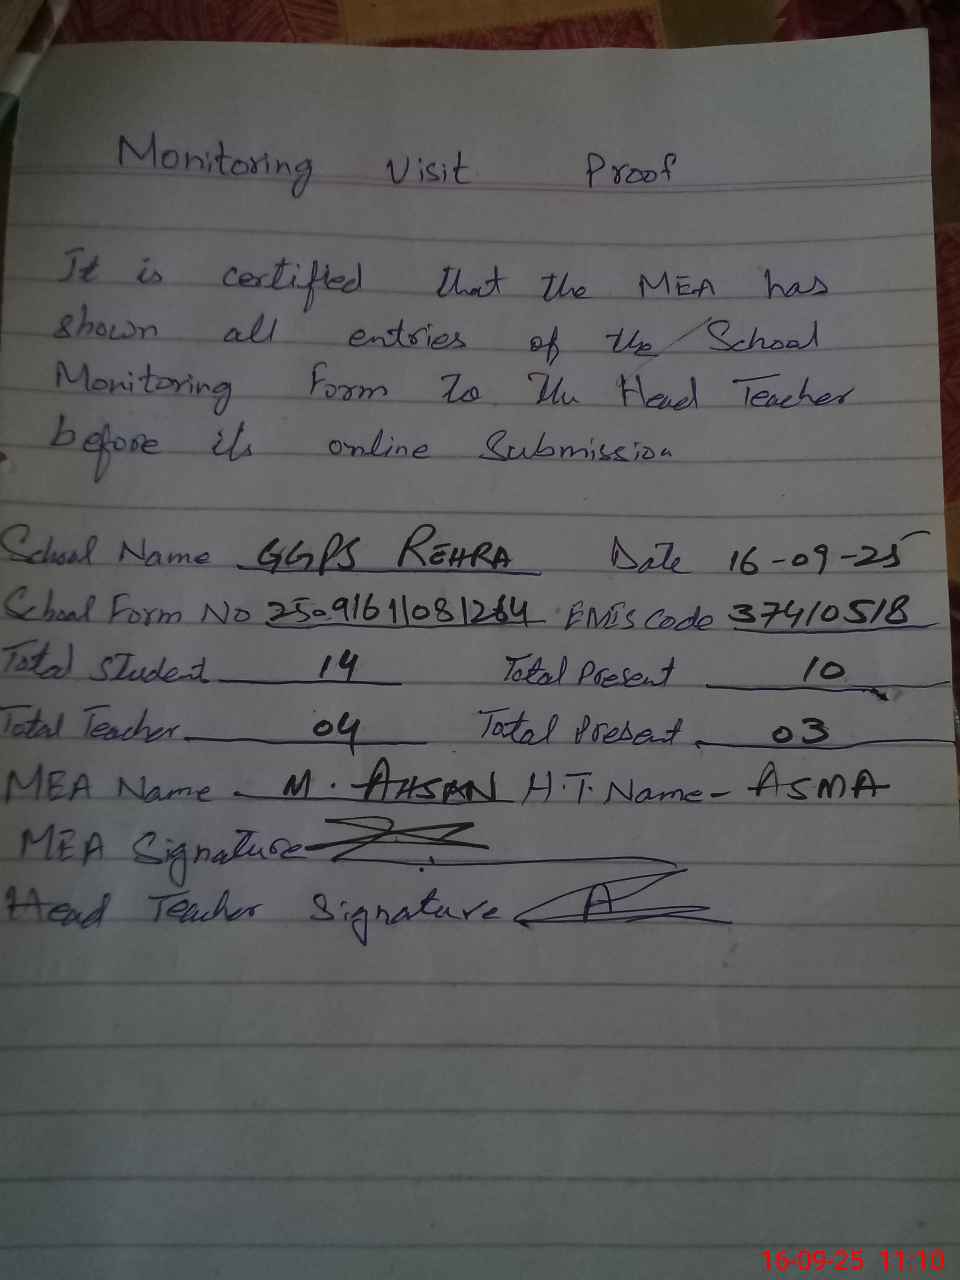 Monitoring Visit Proof
It is certified that the MEA has
shown all entries of the School
Monitoring Form To The Head Teacher
before its online Submission
School Name GGPS REHRA Date 16-09-25
School Form No 2509161081264 EMIS Code 37410518
Total Student 14 Total Present 10
Total Teacher 04 Total Present 03
MEA Name - M. AHSAN H.T. Name - ASMA
MEA Signature
Head Teacher Signature A
16-09-25 11:10